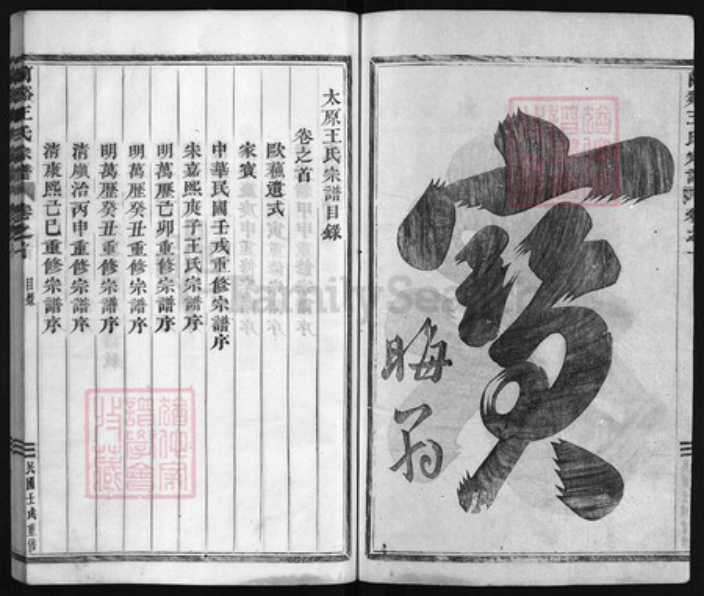 寶
晦翁
太原王氏宗譜目錄
卷之首
歐蘇遺式
家寶
中華民國壬戌重修宗譜序
宋嘉熙庚子王氏宗譜序
明萬歷己卯重修宗譜序
明萬歷癸丑重修宗譜序
明萬歷癸丑重修宗譜序
清順治丙申重修宗譜序
清康熙己巳重修宗譜序
王氏宗譜
卷之首
目錄
民國壬戌重修
FamilySearch